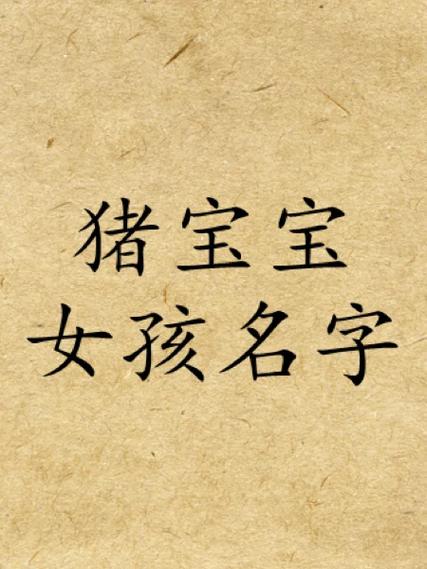 猪宝宝
女孩名字